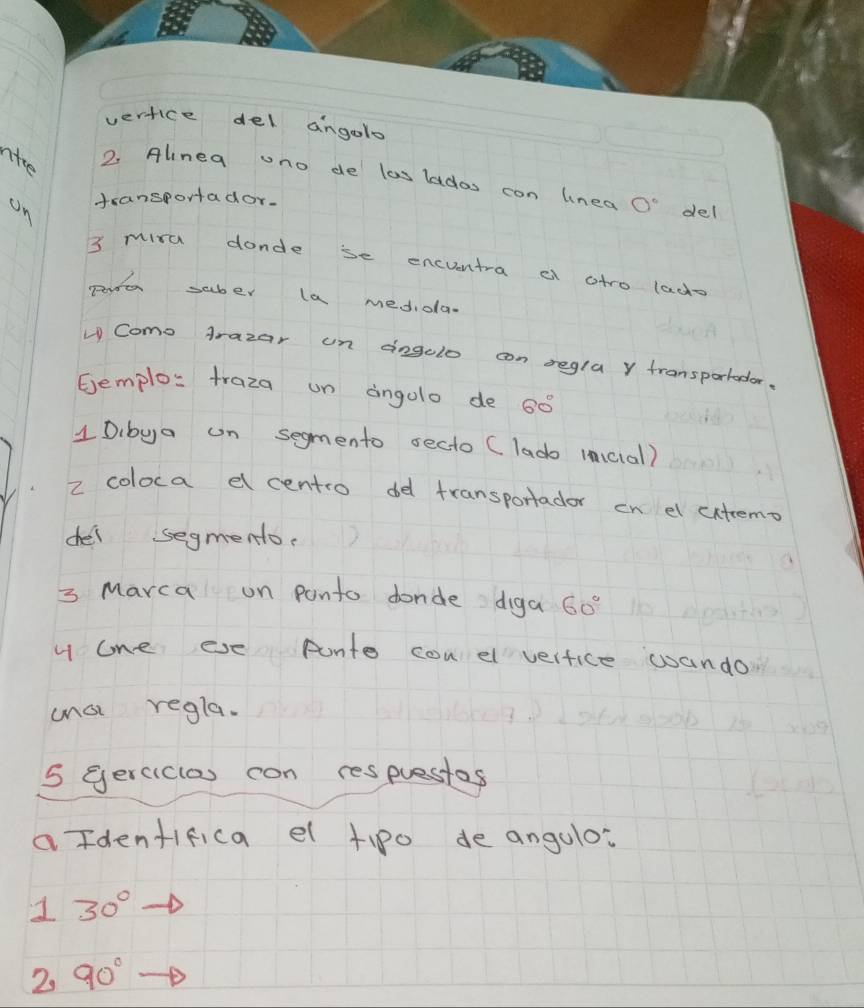 vertice del ángolo
2. Alinea uno de los lados con linea 0° del
transportador.
3 mira donde se encuentra el otro lado
para saber la medida.
4) Como trazar un ángulo con regla y transportador.
Ejemplo: traza un ángulo de 60°
1 Dibuja un segmento recto (lado inicial)
2 coloca el centro del transportador en el extremo
del segmento.
3 Marca un punto donde diga 60°
4 une ese punto con el vertice usando
una regla.
5 Ejercicios con respuestas
a Identifica el tipo de angulo:
1 30° →
2. 90° →
ntre
un